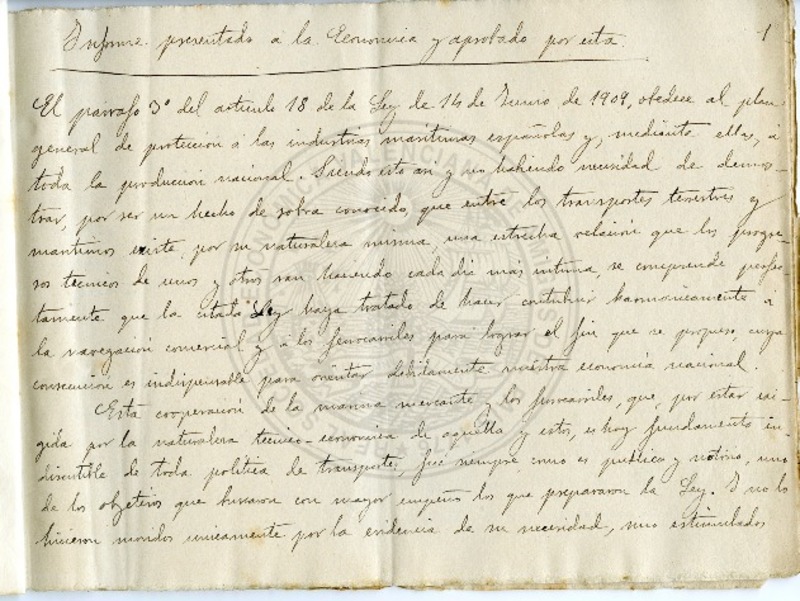 Informe presentado á la Económica y aprobado por esta.
1
El párrafo 3º del artículo 18 de la Ley de 14 de Junio de 1909, obedece al plan
general de protección á las industrias marítimas españolas y, mediante ellas, á
toda la producción nacional. Siendo esto así y no habiendo necesidad de demos-
trar, por ser un hecho de sobra conocido, que entre los transportes terestres y
maritimos existe por su naturaleza misma, una estrecha relación que los progre-
sos técnicos de unos y otros van haciendo cada día más íntima, se comprende perfec-
tamente que la citada Ley haya tratado de hacer contribuir harmónicamente á
la navegación comercial y á los ferrocarriles para lograr el fin que se propuso, cuya
consecución es indispensable para orientar debidamente nuestra economía nacional.
Esta cooperación de la marina mercante y los ferrocarriles, que, por estar exi-
gida por la naturaleza técnico-económica de aquella y estos, es hoy fundamento in-
discutible de toda política de transporte, fué siempre, como es público y notorio, uno
de los objetivos que buscaron con mayor empeño los que prepararon la Ley. Y no lo
hicieron movidos unicamente por la evidencia de su necesidad, sino estimulados